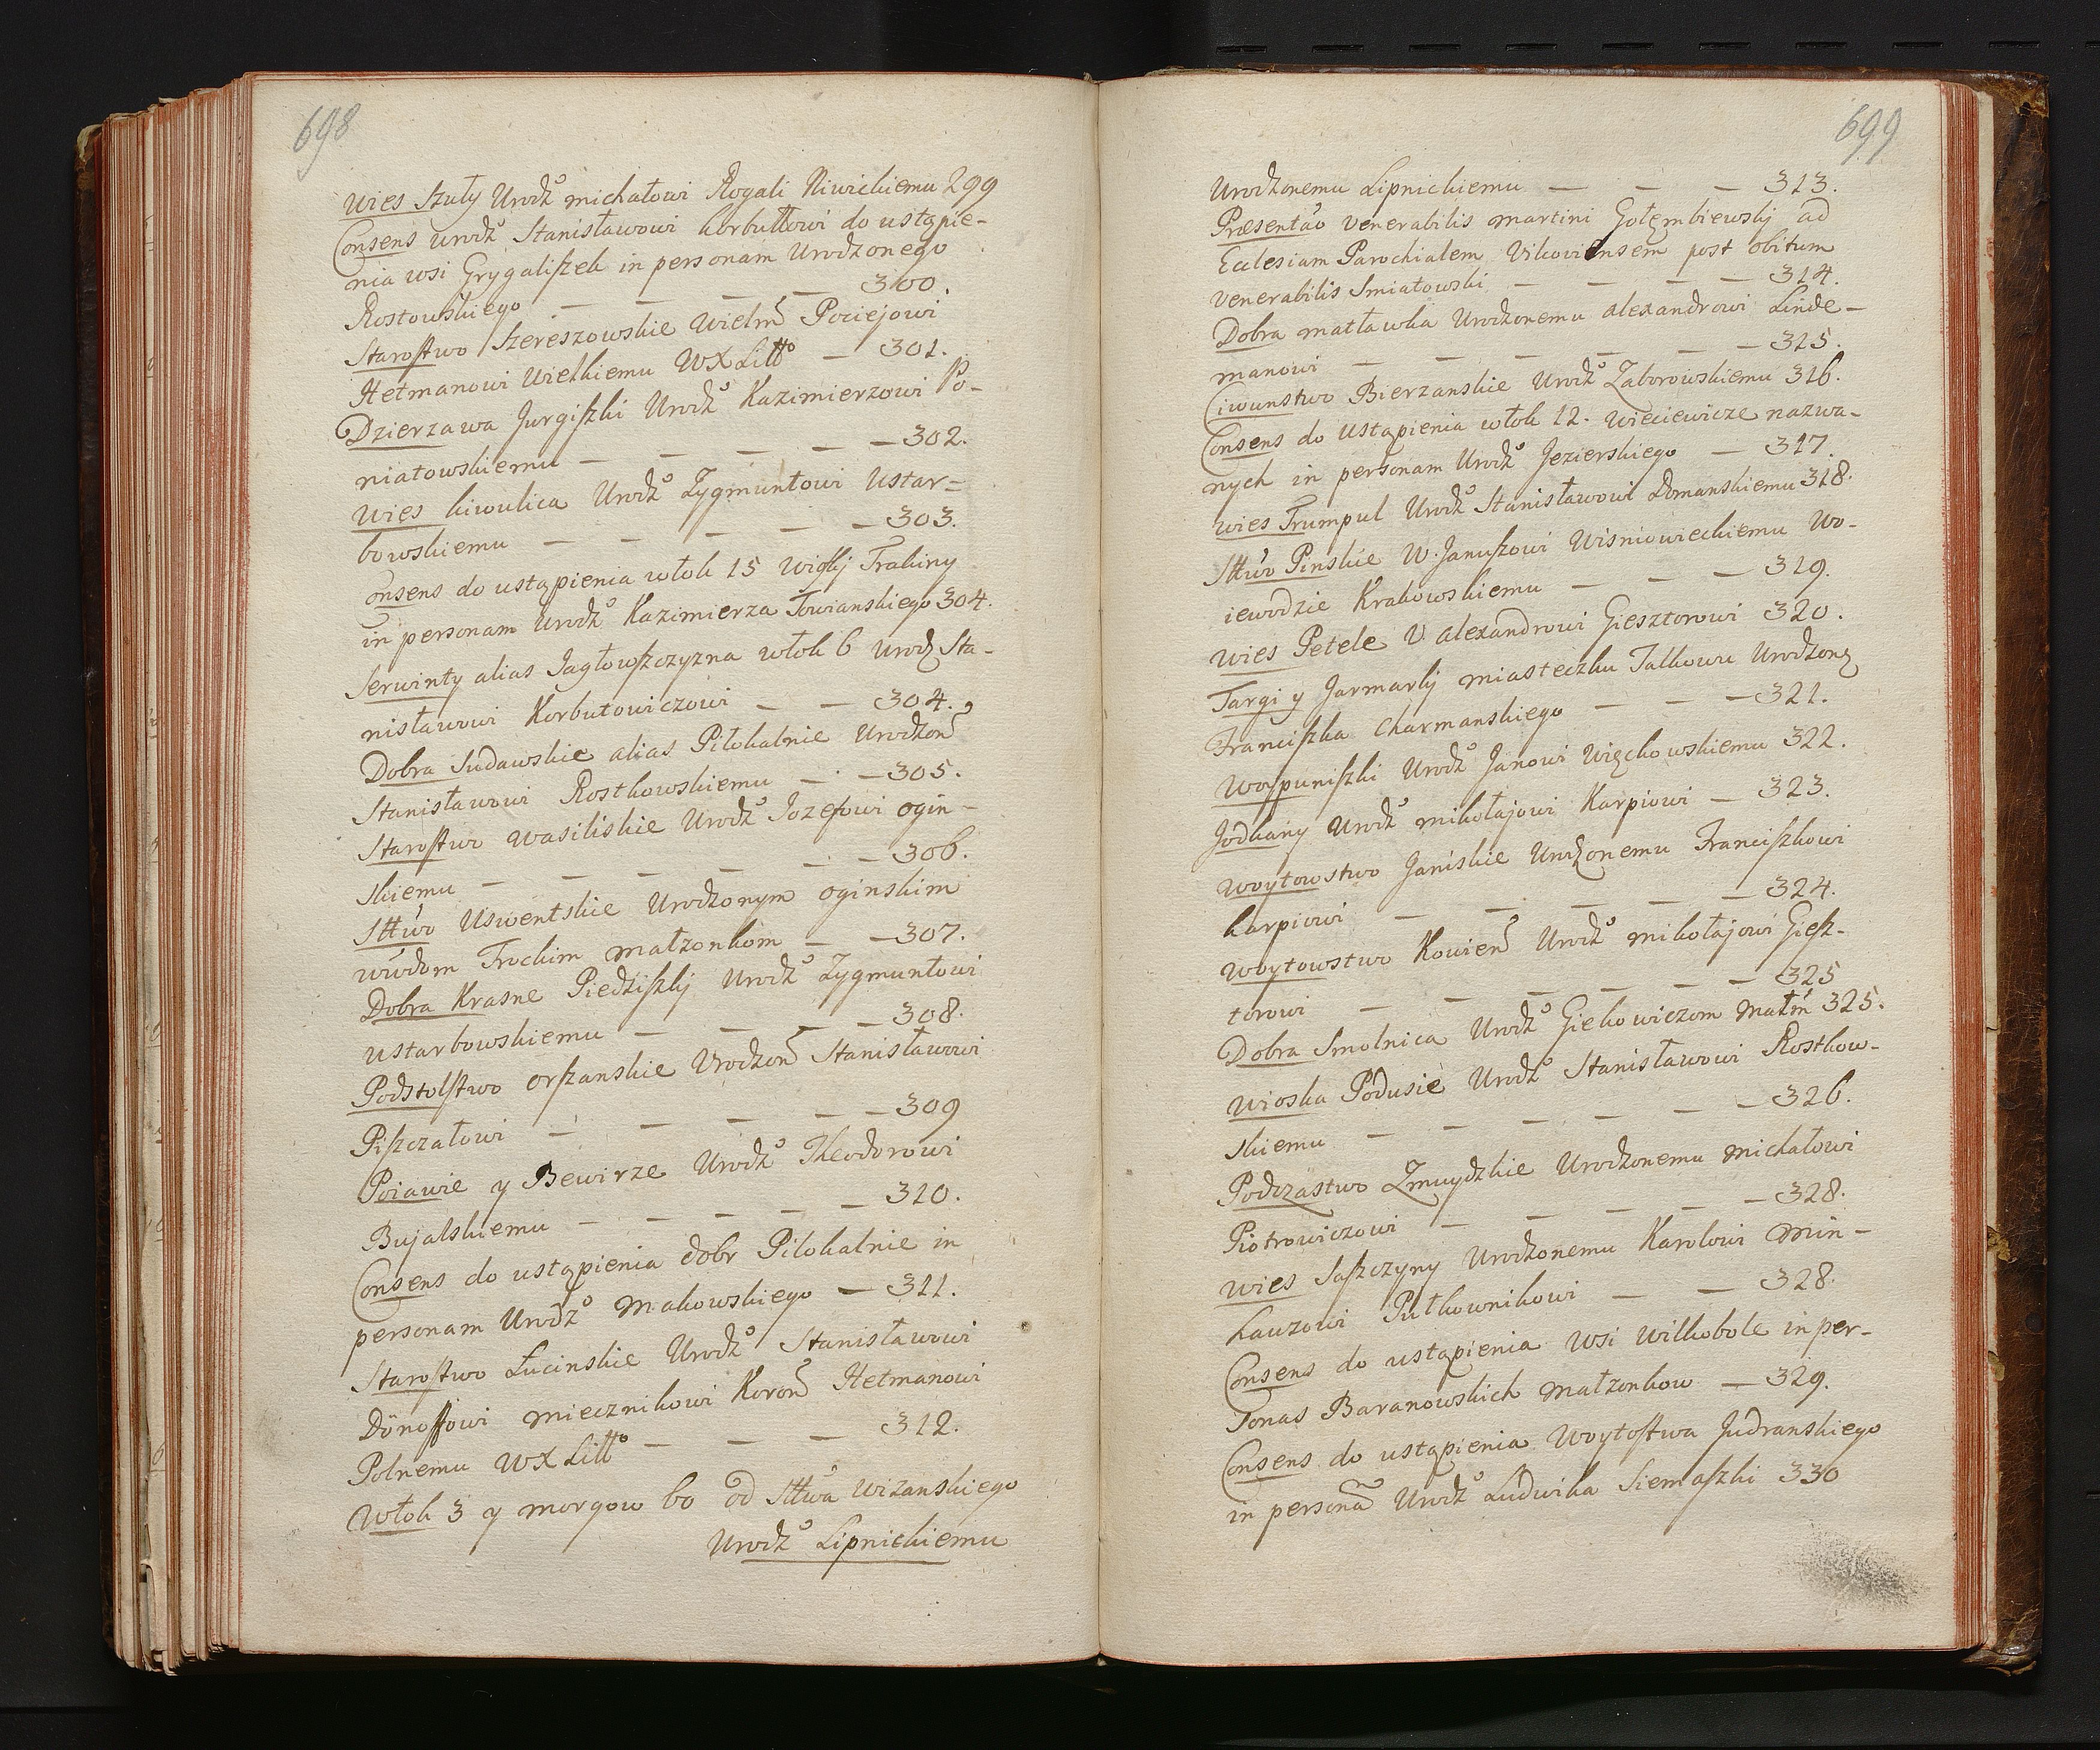 698
Wies Szuły Urodź° michałowi Rogali Niwickiemu 299
Consens urodź° Stanisławowi korbuttowi do ustąpie-
nia wsi Grygaliszek in personam Urodzonego
Rostowskiego — — — — 300.
Starostwo Szereszowskie Wielm Pociejowi
Hetmanowi Wielkiemu WXLitt° — 301.
Dzierzawa Jurgiszki Urodź° Kazimierzowi Po-
niatowskiemu — — — — — 302.
Wies kiwulica Urodź° Zygmuntowi Ustar=
bowskiemu — — — — — 303.
Consens do ustąpienia włok 15 Trakiny
in personam urodź° Kazimierza Towianskiego 304.
Serwinty alias Jagłowszczyzna włok 6 urodz Sta-
nisławowi Korbutowiczowi — — 304.
Dobra Sudawskie alias Piłokalnie Urodzon
Stanisławowi Rostkowskiemu — — 305.
Starostwo Wasiliskie Urodź° Jozefowi ogin-
skiemu — — — — — 306.
Sttwo Uswentskie Urodzonym oginskim
wwdom Trockim małzonkom — — 307.
Dobra Krasne Piedziszki Urodź° Zygmuntowi
ustarbowskiemu — — — — 308.
Podstolstwo orszanskie Urodzon Stanisławowi
Piszczałowi — — — — — 309
Poiawie y Bewirze Urodź° Theodorowi
Bujalskiemu — — — — — 310.
Consens do ustąpienia dobr Pilokalnie in
personam Urodź° Makowskiego — 311.
Starostwo Łucinskie Urodź° Stanisławowi
Dönoffowi miecznikowi Koron Hetmanowi
Polnemu WXLitt° — — — 312.
Włok 3 y morgow 60 od Sttwa Wizanskiego
Urodź° Lipnickiemu
699
Urodzonemu Lipnickiemu — — — 313.
Præsentao Venerabilis Martini Gołęmbiewskj ad
Ecclesiam Parochialem Vikoviensem post obitum
Venerabilis Smiałowski — — — — 314.
Dobra matławka Urodzonemu alexandrowi Linde-
manowi — — — — — — 315.
Ciwunstwo Bierzanskie Urodź° Zaborowskiemu 316.
Consens do Ustąpienia włok 12. Wieciewicze nazwa-
nych in personam Urodź° Jezierskiego — 317.
Wies Trumpul Urodź° Stanisławowi Domanskiemu 318.
Sttwo Pinskie W. Januszowi Wisniowieckiemu Wo-
iewodzie Krakowskiemu — — — 319.
Wies Petele U alexandrowi Giesztorowi 320.
Targi y Jarmarkj miasteczku Talkowu Urodzone
Franciszka Charmanskiego — — — 321.
Wospuniszki Urodź° Janowi Więckowskiemu 322.
Jodkany Urodź° mikołajowi Karpiowi — 323.
Woytowstwo Janiskie Urodzonemu Franciszkowi
karpiowi — — — — — 324.
Woytowstwo Kowien Urodź° mikołajowi Giesz-
torowi — — — — — — 325
Dobra Smolnica Urodź° Giekowiczom małm 325.
Wioska Podusie Urodź° Stanisławowi Rostkow-
skiemu — — — — — — 326.
Podczastwo Zmuydzkie Urodzonemu michałowi
Piotrowiczowi — — — — — 328.
Wies Saszczyny Urodzonemu Karolowi Min-
kauzowi Pułkownikowi — — 328.
Consens do ustąpienia Wsi Wilkobole in per-
sonas Baranowskich małzonkow — 329.
Consens do ustąpienia Woytostwa Judranskiego
in persona Urodź° Ludwika Siemaszki 330